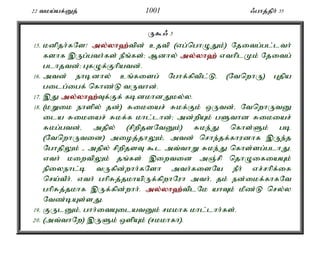 22 வமய்யக்னுத் 1001 ஃபாத்திர் 35
ருகூஃ 3
15. மனிதர்களே! அல்லாஹ்வின் உதவி (எப்பொழுதும்) தேவைப்பட்டவர்
களாக இருப்பவர்கள் நீங்கள்; ஆனால் அல்லாஹ் எவரிடமும் தேவைப்
படாதவன்; புகழுக்குரியவன்.
16. அவன் நாடினால் உங்களைப் போக்கிவிட்டு, (வேறொரு) புதிய
படைப்பைக் கொண்டு வருவான்.
17. இது அல்லாஹ்வுக்குக் கடினமானதுமல்ல.
18. (மறுமை நாளில் தன்) சுமையைச் சுமக்கும் ஒருவன், வேறொருவனு
டைய சுமையைச் சுமக்க மாட்டான்; அன்றியும் பளுவான சுமையைச்
சுமப்பவன், அதில் (சிறிதளவேனும்) சுமந்து கொள்ளும் படி
(வேறொருவனை) அழைத்தாலும், அவன் சொந்தக்காரனாக இருந்த
போதிலும் , அதில் சிறிதளவு கூட அவ்வாறு சுமந்து கொள்ளப்படாது.
எவர் மறைவிலும் தங்கள் இறைவனை அஞ்சி தொழுகையையும்
நிலைநாட்டி வருகின்றார்களோ அவர்களையே நீர் எச்சரிக்கை
செய்வீர். எவர் பரிசுத்தமாயிருக்கிறாரோ அவர், தம் நன்மைக்காகவே
பரிசுத்தமாக இருக்கின்றார். அல்லாஹ்விடமே யாவும் மீண்டு செல்ல
வேண்டியுள்ளது.
19. குருடனும், பார்வையுடையவனும் சமமாக மாட்டார்கள்.
20. (அவ்வாறே) இருளும் ஒளியும் (சமமாகா).